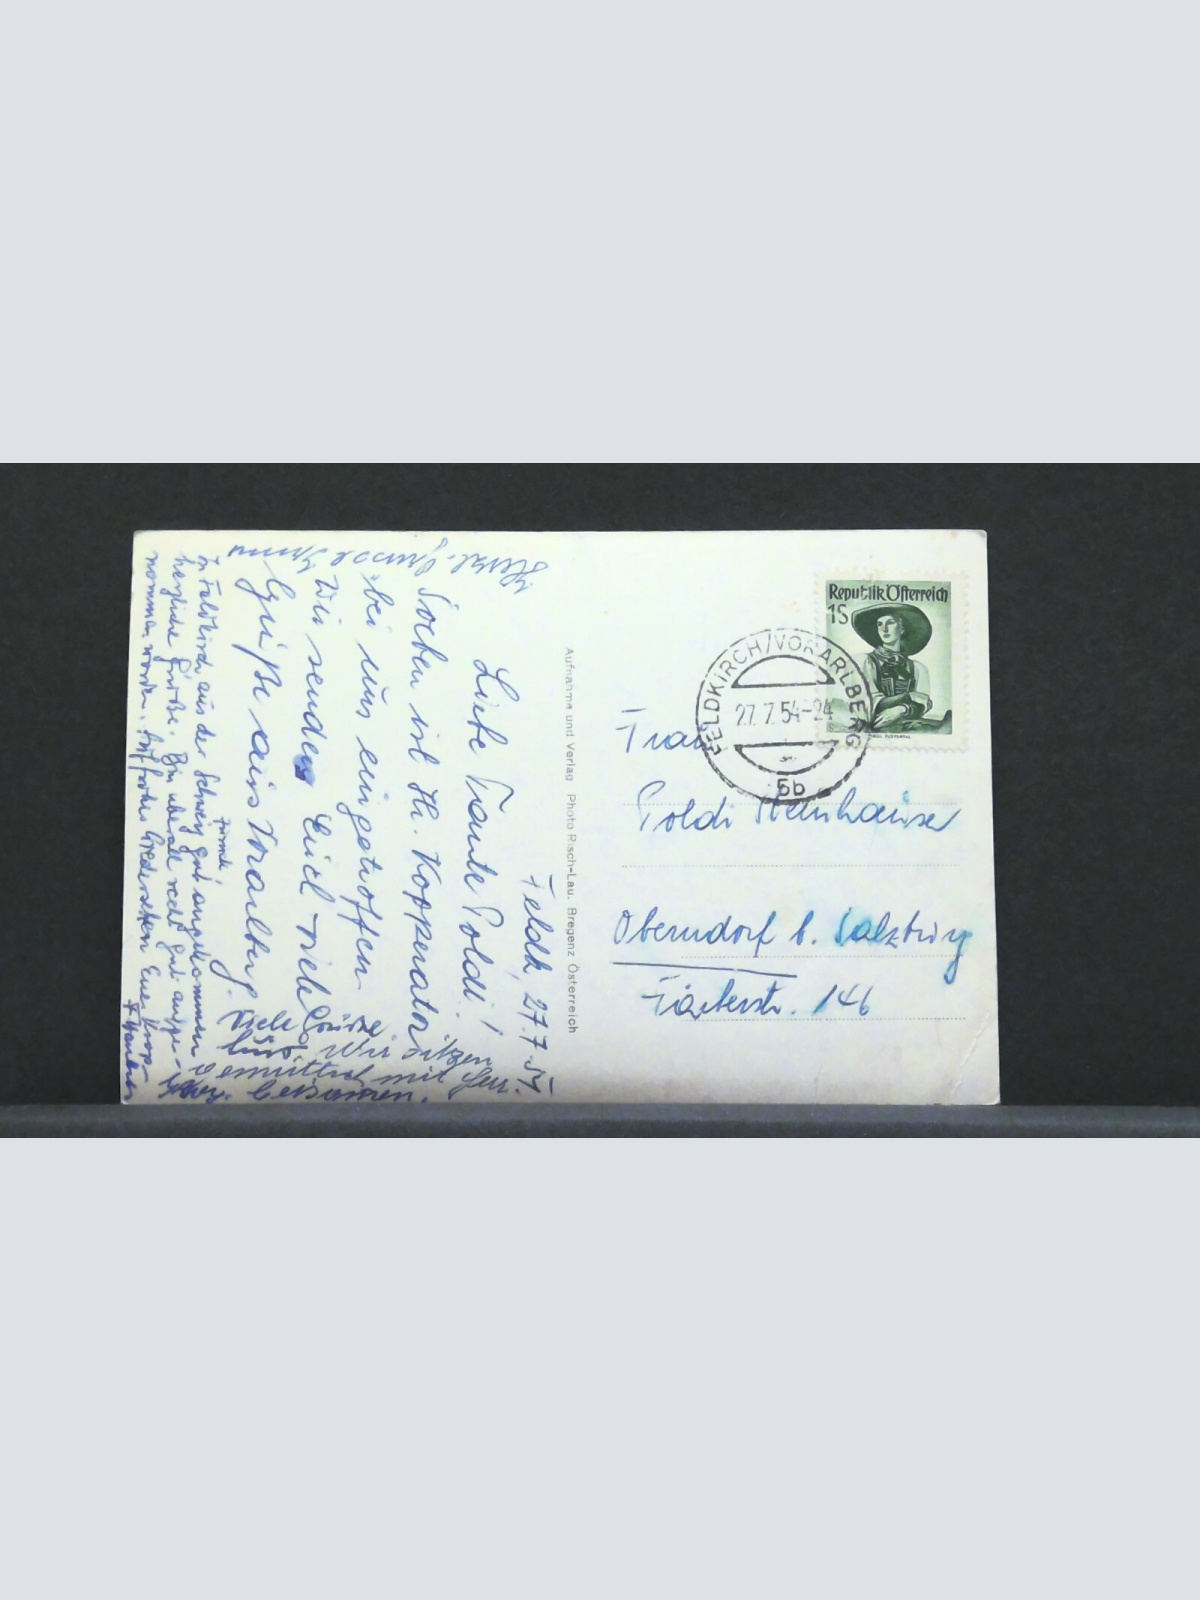 Feldk. 27.7.54
Liebe Tante Poldi!
Soeben ist Hr. Kopperator
bei uns eingetroffen
Wir senden Euch viele
Grüße aus Vorarlberg.
Viele Grüße
Wir sitzen
mit
beisammen.
zurück
In Feldkirch aus der Schweiz gut angekommen
herzliche Grüße. Bin überall recht gut aufge-
nommen worden. Auf frohes Wiedersehen Euer Koop-
Herzl. Grüsse
Aufnahme und Verlag Photo Risch-Lau, Bregenz Österreich
Republik Österreich
1S
FELDKIRCH/VORARLBERG
27. 7. 54-24
5b
Frau
Poldi Steinhauser
Oberndorf b. Salzburg
146